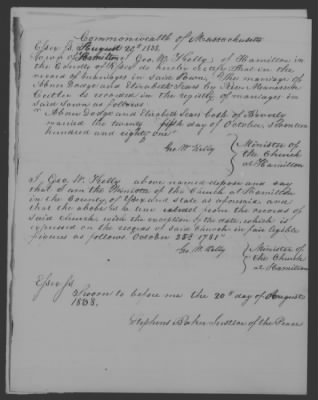 Commonwealth of Massachusetts
Essex Ss. August 20th 1838.
Town of Hamilton I Geo. W. Kelly, of Hamilton in
the County of Essex do hereby certify that in the
record of marriages in said Town, "The marriage of
Abner Dodge and Elizabeth Sears by Rev. Manasseh
Cutler is recorded in the registry of marriages
in said Town as follows
" Abner Dodge and Elizabeth Sears both of Beverly
married the twenty fifth day of October, Seventeen
hundred and eighty one"
Geo. W. Kelly { Minister of
the Church
at Hamilton
I, Geo. W. Kelly above named depose and say
that I am the Minister of the Church at Hamilton
in the County of Essex and state as aforesaid and
that the above is a true extract from the records of
said church with the exception of the date which is
expressed on the records of said Church in fair legible
figures as follows October 25th 1781"
Geo. W. Kelly { Minister of
the Church
at Hamilton
Essex Ss
Sworn to before me the 20th day of August
1838.
Stephens Baker Justice of the Peace